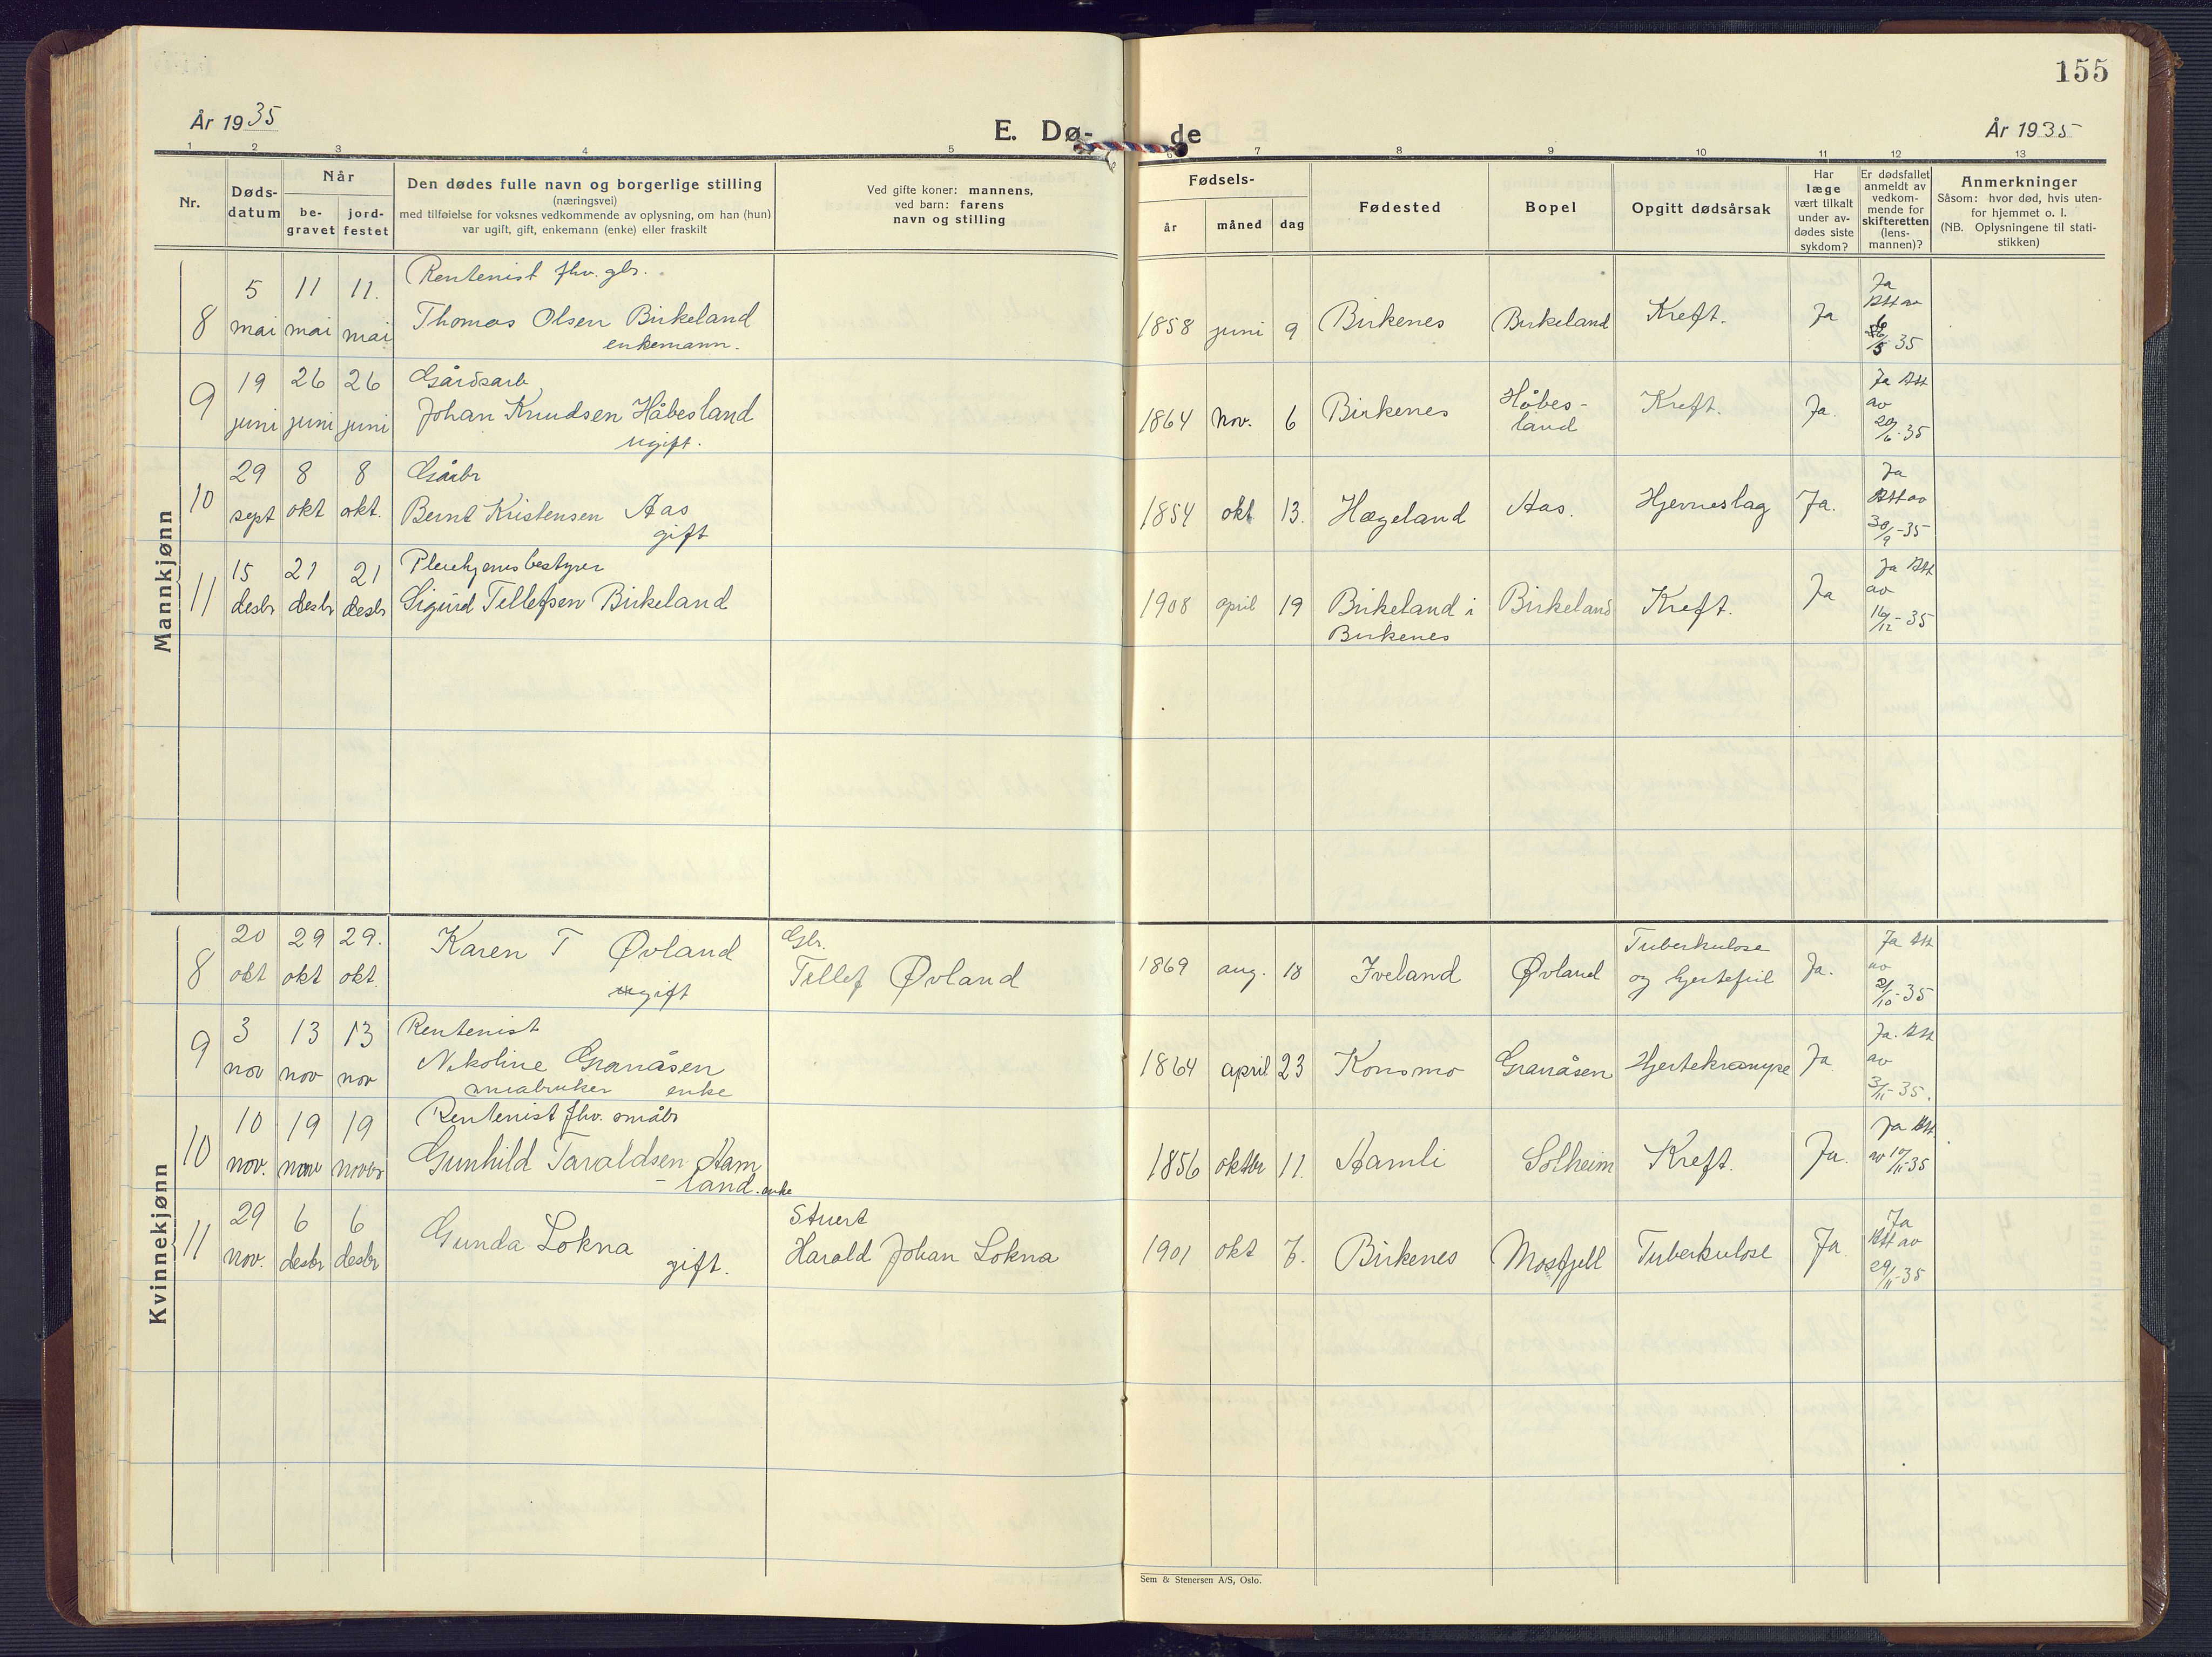 155
År 1935
E. Dø-
de
År 1935
1 2 3 4 5
6 7 8 9 10 11 12 13
Nr.
Døds-
datum
Når
be-
gravet
jord-
festet
Den dødes fulle navn og borgerlige stilling
(næringsvei)
med tilføielse for voksnes vedkommende av oplysning, om han (hun)
var ugift, gift, enkemann (enke) eller fraskilt
Ved gifte koner: mannens,
ved barn: farens
navn og stilling
Fødsels-
år
måned
dag
Fødested
Bopel
Opgitt dødsårsak
Har
læge
vært tilkalt
under av-
dødes siste
sykdom?
Er dødsfallet
anmeldt av
vedkom-
mende for
skifteretten
(lens-
mannen)?
Anmerkninger
Såsom: hvor død, hvis uten-
for hjemmet o. l.
(NB. Oplysningene til stati-
stikken)
Mannkjønn
8
5 mai
11 mai
11. mai
Rentenist fhv. gbr.
Thomas Olsen Birkeland
enkemann.
1858 juni 9
Birkenes
Birkeland
Kreft.
Ja
Ja
Att av
35
9
19 juni
26 juni
26 juni
Gårdsarb
Johan Knudsen Håbesland
ugift.
1864 nov. 6
Birkenes
Håbes-
land
Kreft.
Ja.
Ja Att
av
20/6-35
10
29 sept
8 okt
8 okt.
Gårbr
Bernt Kristensen Aas
gift
1854 okt 13.
Hægeland
Aas.
Hjerneslag
Ja.
Ja
Att av
30/9-35
11
15 desbr
21 desbr
21 desbr
Pleiehjemsbestyrer
Sigurd Tellefsen Birkeland
1908 april 19
Birkeland i
Birkenes
Birkeland
Kreft.
Ja
Ja Att
av
16/12-35
Kvinnekjønn
8
20 okt
29 okt
29. okt.
Karen T Øvland
gift
Gbr.
Tellef Øvland
1869 aug. 18
Iveland
Øvland
Tuberkulose
og hjertefeil
Ja.
Ja Att
av
21/10-35
9
3 nov
13 nov
13 nov
Rentenist
Nikoline Granåsen
småbruker enke
1864 april 23
Konsmo
Granåsen
Hjertekrampe
Ja
Ja. Att
av
3/11-35.
10
10 nov.
19 nov
19 novbr
Rentenist fhv. småbr
Gunhild Taraldsen Ham
- land. enke
1856 oktbr 11.
Hamli
Solheim
Kreft.
Ja.
Ja Att
av 10/11-35
11
29 nov.
6 desbr
6 desbr
Gunda Lokna
gift.
Stuert
Harald Johan Lokna
1901 okt 7.
Birkenes
Mosfjell
Tuberkulose
Ja.
Ja
Att av
29/11-35
Sem & Stenersen A/S, Oslo.